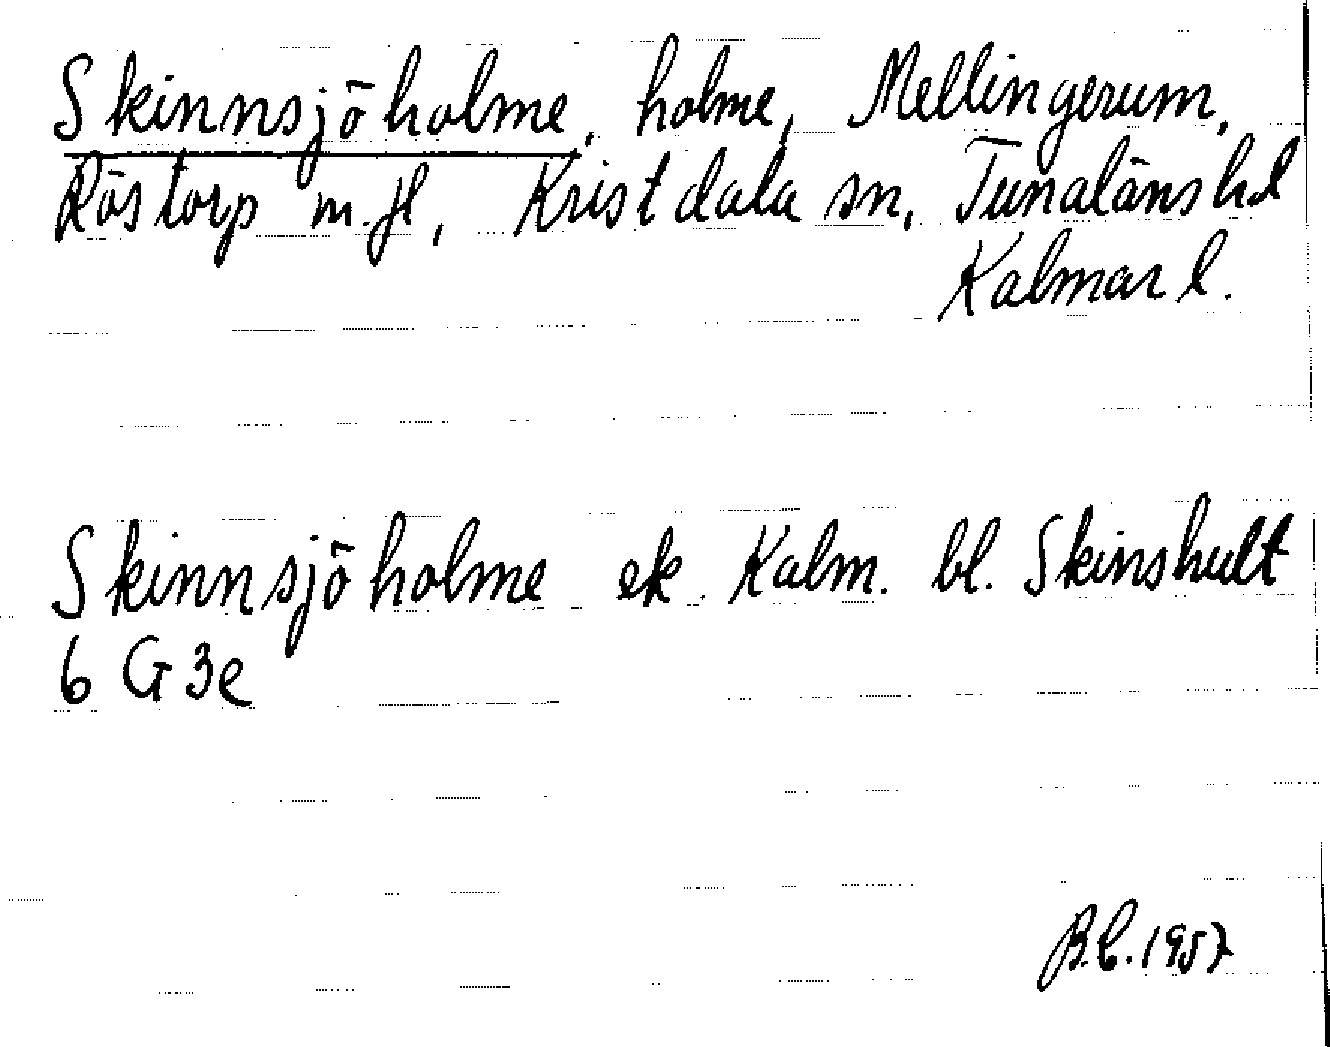 Skinnsjöholme, holme, Mellingerum,
Röstorp m.fl, Kristdala sn, Tunaläns hd
Kalmar l.
Skinnsjöholme ek Kalm. bl. Skinshult
6 G 3e
B.C. 1957